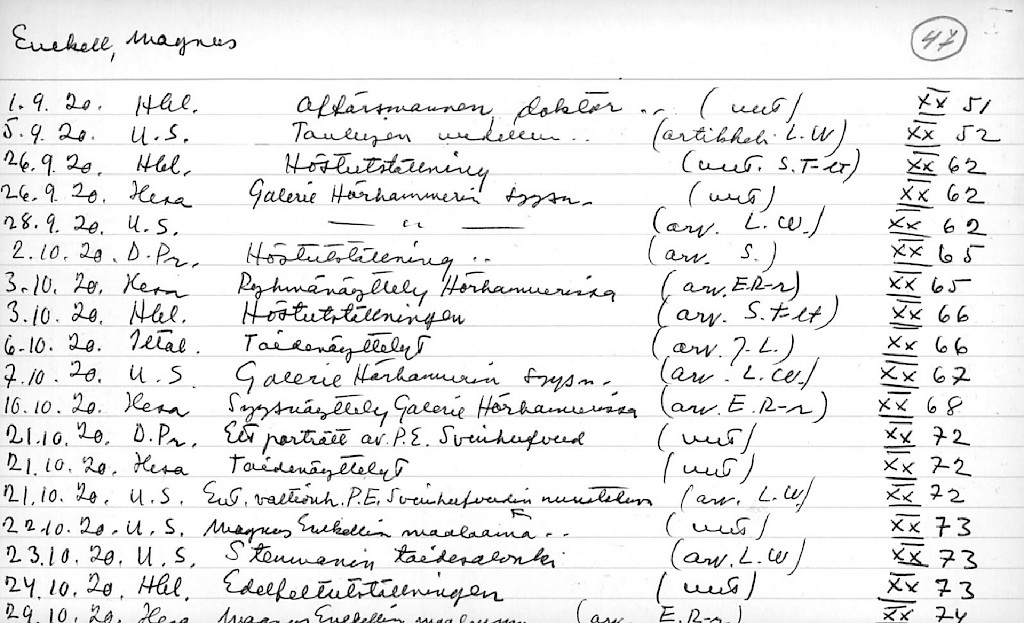 Enckell, Magnus 47
1.9.20. Hbl. Affärsmannen, doktor .. (uut) XX 51
5.9.20. U.S. Taulujen .. (artikkeli L.W) XX 52
26.9.20. Hbl. Höstutställning (uut. S.T-lt) XX 62
26.9.20. Hesa Galerie Hörhammerin syysn. (uut) XX 62
28.9.20. U.S. — " — (arv. L.W.) XX 62
2.10.20. D.Pr. Höstutställning .. (arv. S.) XX 65
3.10.20. Hesa Ryhmänäyttely Hörhammerissa (arv. E.R-r) XX 65
3.10.20. Hbl. Höstutställningen (arv. S.T-lt) XX 66
6.10.20. Iltal. Taidenäyttelyt (arv. J.L.) XX 66
7.10.20. U.S. Galerie Hörhammerin syysn. (arv. L.W.) XX 67
10.10.20. Hesa Syysnäyttely Galerie Hörhammerissa (arv. E.R-r) XX 68
21.10.20. D.Pr. Ett porträtt av P.E. Svinhufvud (uut) XX 72
21.10.20. Hesa Taidenäyttelyt (uut) XX 72
21.10.20. U.S. Ent. valtionh. P.E. Svinhufvudin muotokuva (arv. L.W) XX 72
22.10.20. U.S. Magnus Enckellin maalaama .. (uut) XX 73
23.10.20. U.S. Stenmanin taidesalonki (arv. L.W) XX 73
24.10.20. Hbl. Edelfeltutställningen (uut) XX 73
29.10.20. Hesa Magnus Enckellin (arv. E.R-r.) XX 74